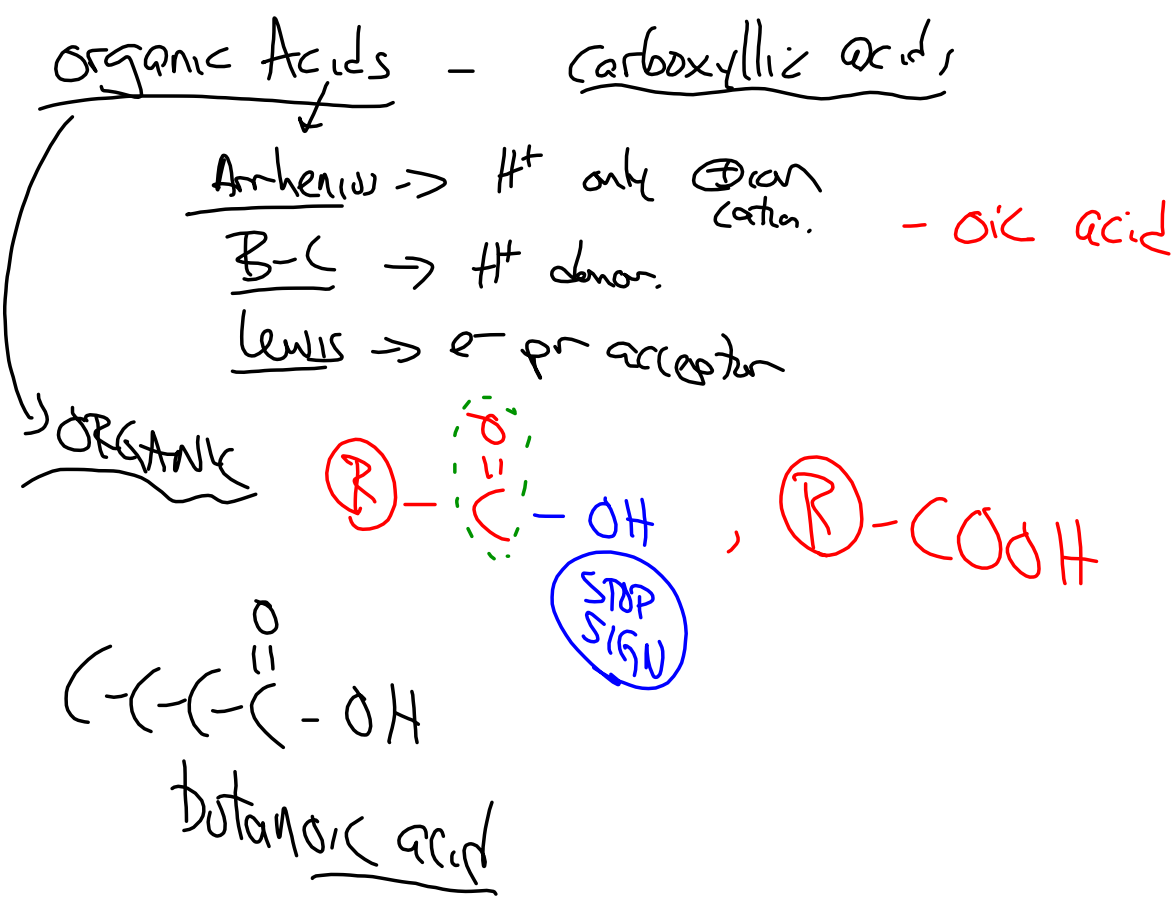 organic Acids - carboxyllic acids
Arrhenius -> H+ only + ion
cation.
- oic acid
B-L -> H+ donor.
Lewis -> e- pr acceptor
ORGANIC
O
||
R - C - OH , R - COOH
STOP
SIGN
O
||
C-C-C-C - OH
butanoic acid